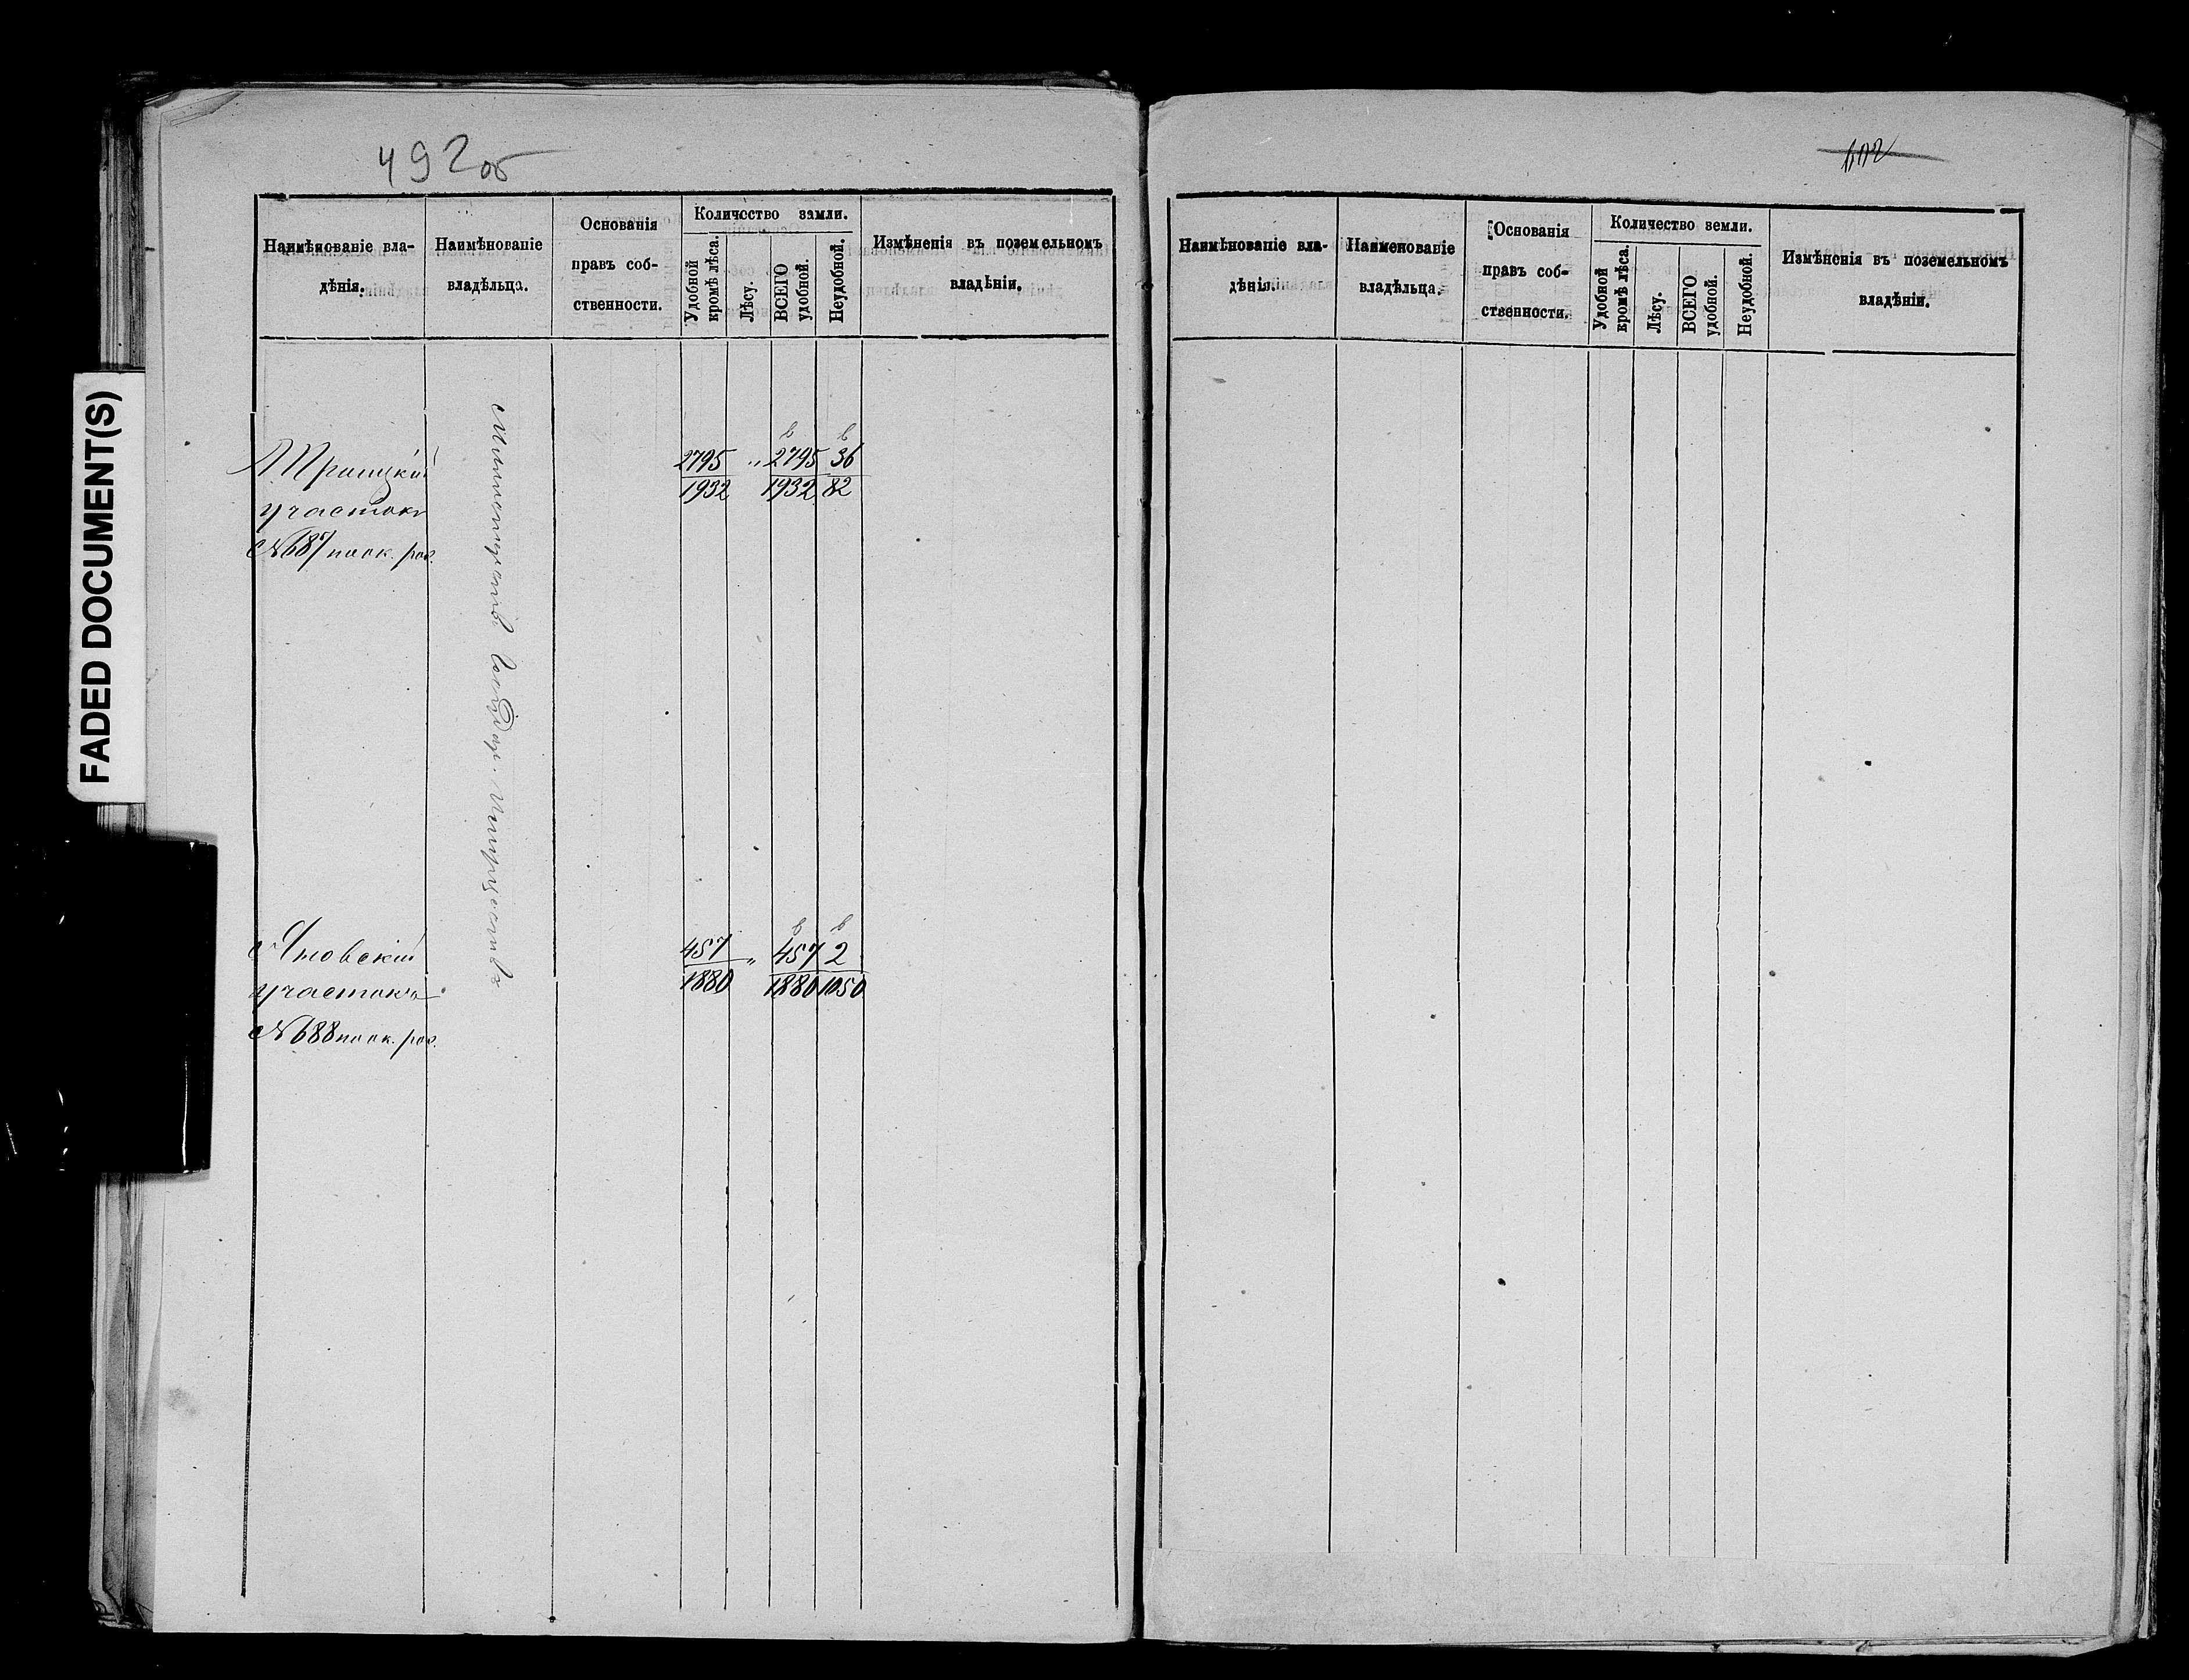 FADED DOCUMENT(S)
492об
Наимѣнованіе вла-
дѣнія.
Наимѣнованіе
владѣльца.
Основанія
правъ соб-
ственности.
Количество земли.
Удобной
кромѣ лѣса.
Лѣсу.
ВСЕГО
удобной.
Неудобной.
Измѣненія въ поземельномъ
владѣніи.
Троицкій
участокъ
№ 687 по ок. рос.
Министерство Государ. Имуществъ
2795 „ 2795 36
1932 1932 82
участокъ
№ 688 по ок. рос.
457 „ 457 2
1880 1880 1050
Наимѣнованіе вла-
дѣнія.
Наименованіе
владѣльца.
Основанія
правъ соб-
ственности.
Количество земли.
Удобной
кромѣ лѣса.
Лѣсу.
ВСЕГО
удобной.
Неудобной.
Измѣненія въ поземельномъ
владѣніи.